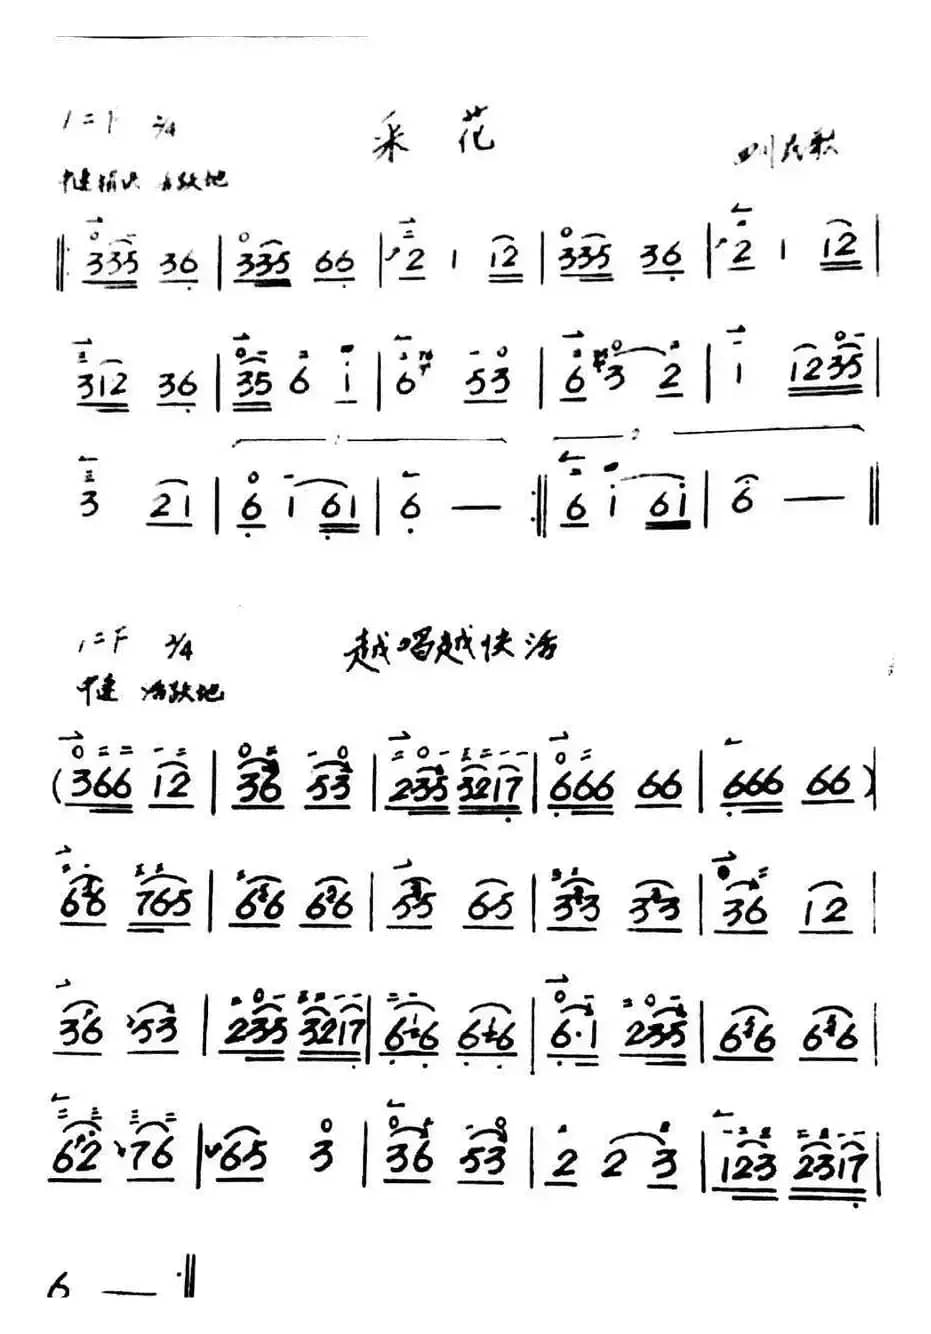 1=F 2/4 采花
四川民歌
中速稍快 活跃地
‖: 335 36 | 335 66 | 2 1 12 | 335 36 | 2 1 12 |
312 36 | 35 6 i | 6 53 | 6 3 2 | 1 1235 |
3 21 | 6 1 61 | 6 — :‖ 6 i 61 | 6 — ‖
1=F 2/4 越唱越快活
中速 活跃地
(366 12 | 36 53 | 235 3217 | 6666 66 | 6666 66)|
66 765 | 66 66 | 55 65 | 33 33 | 36 12 |
36 53 | 235 3217 | 66 66 | 6·1 235 | 66 66 |
62 76 | 65 3 | 36 53 | 2 2 3 | 123 2317 |
6 — :‖